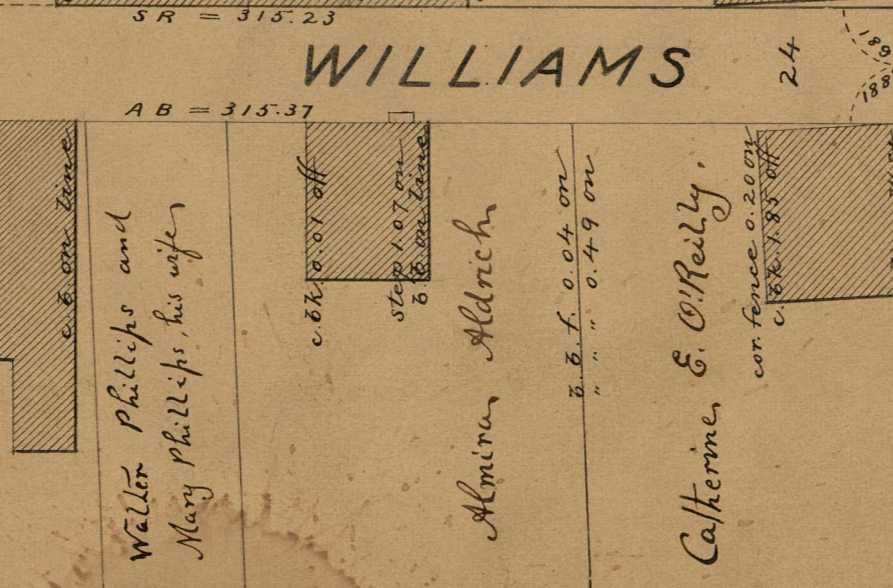 SR = 315.23
WILLIAMS
24
189
188
AB = 315.37
c.b. on line
Walter Phillips and
Mary Phillips, his wife,
c.bk. 0.01 off
step 1.07 on
b. on line
Almira Aldrich
b. b. f. 0.04 on
" " " 0.49 on
Catherine E. O'Reilly.
cor. fence 0.20 on
c. bk. 1.85 off